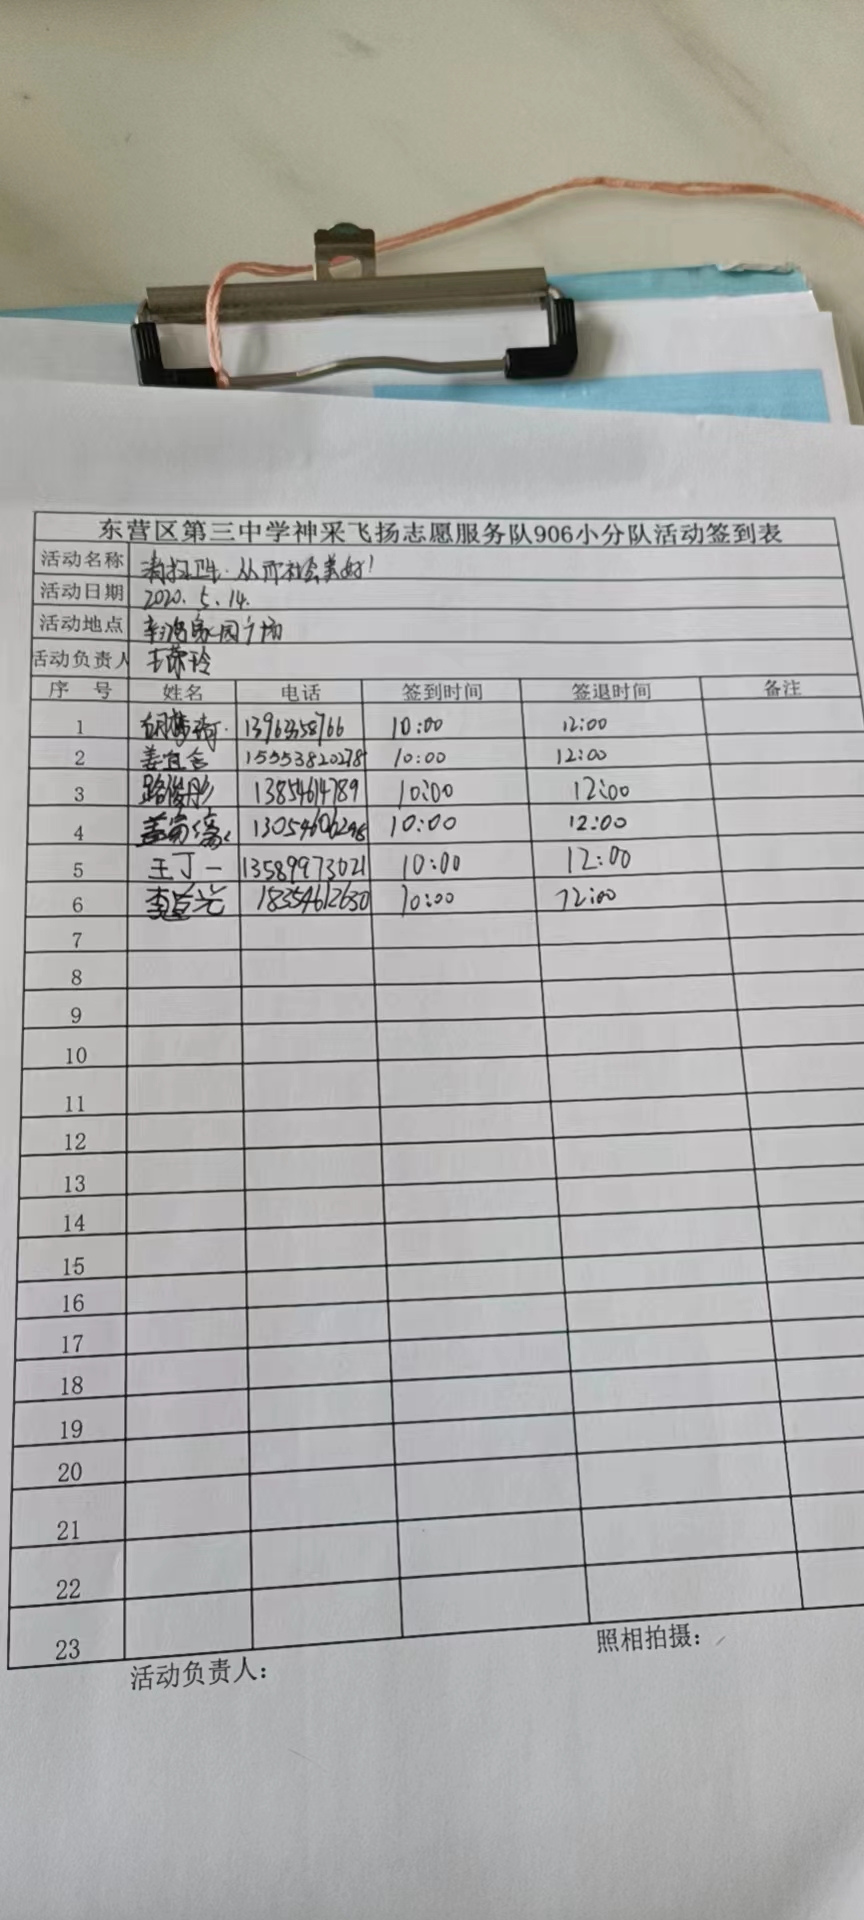 东营区第三中学神采飞扬志愿服务队906小分队活动签到表
活动名称 清扫卫生·从而社会美好!
活动日期 2020.5.14.
活动地点 家园广场
活动负责人 王蒙玲
序号 姓名 电话 签到时间 签退时间 备注
1 10:00 12:00
2 姜宜含 15553820278 10:00 12:00
3 路俊彤 13854614789 10:00 12:00
4 13054606298 10:00 12:00
5 王丁一 13589973021 10:00 12:00
6 18354612630 10:00 12:00
7
8
9
10
11
12
13
14
15
16
17
18
19
20
21
22
23
活动负责人: 照相拍摄: